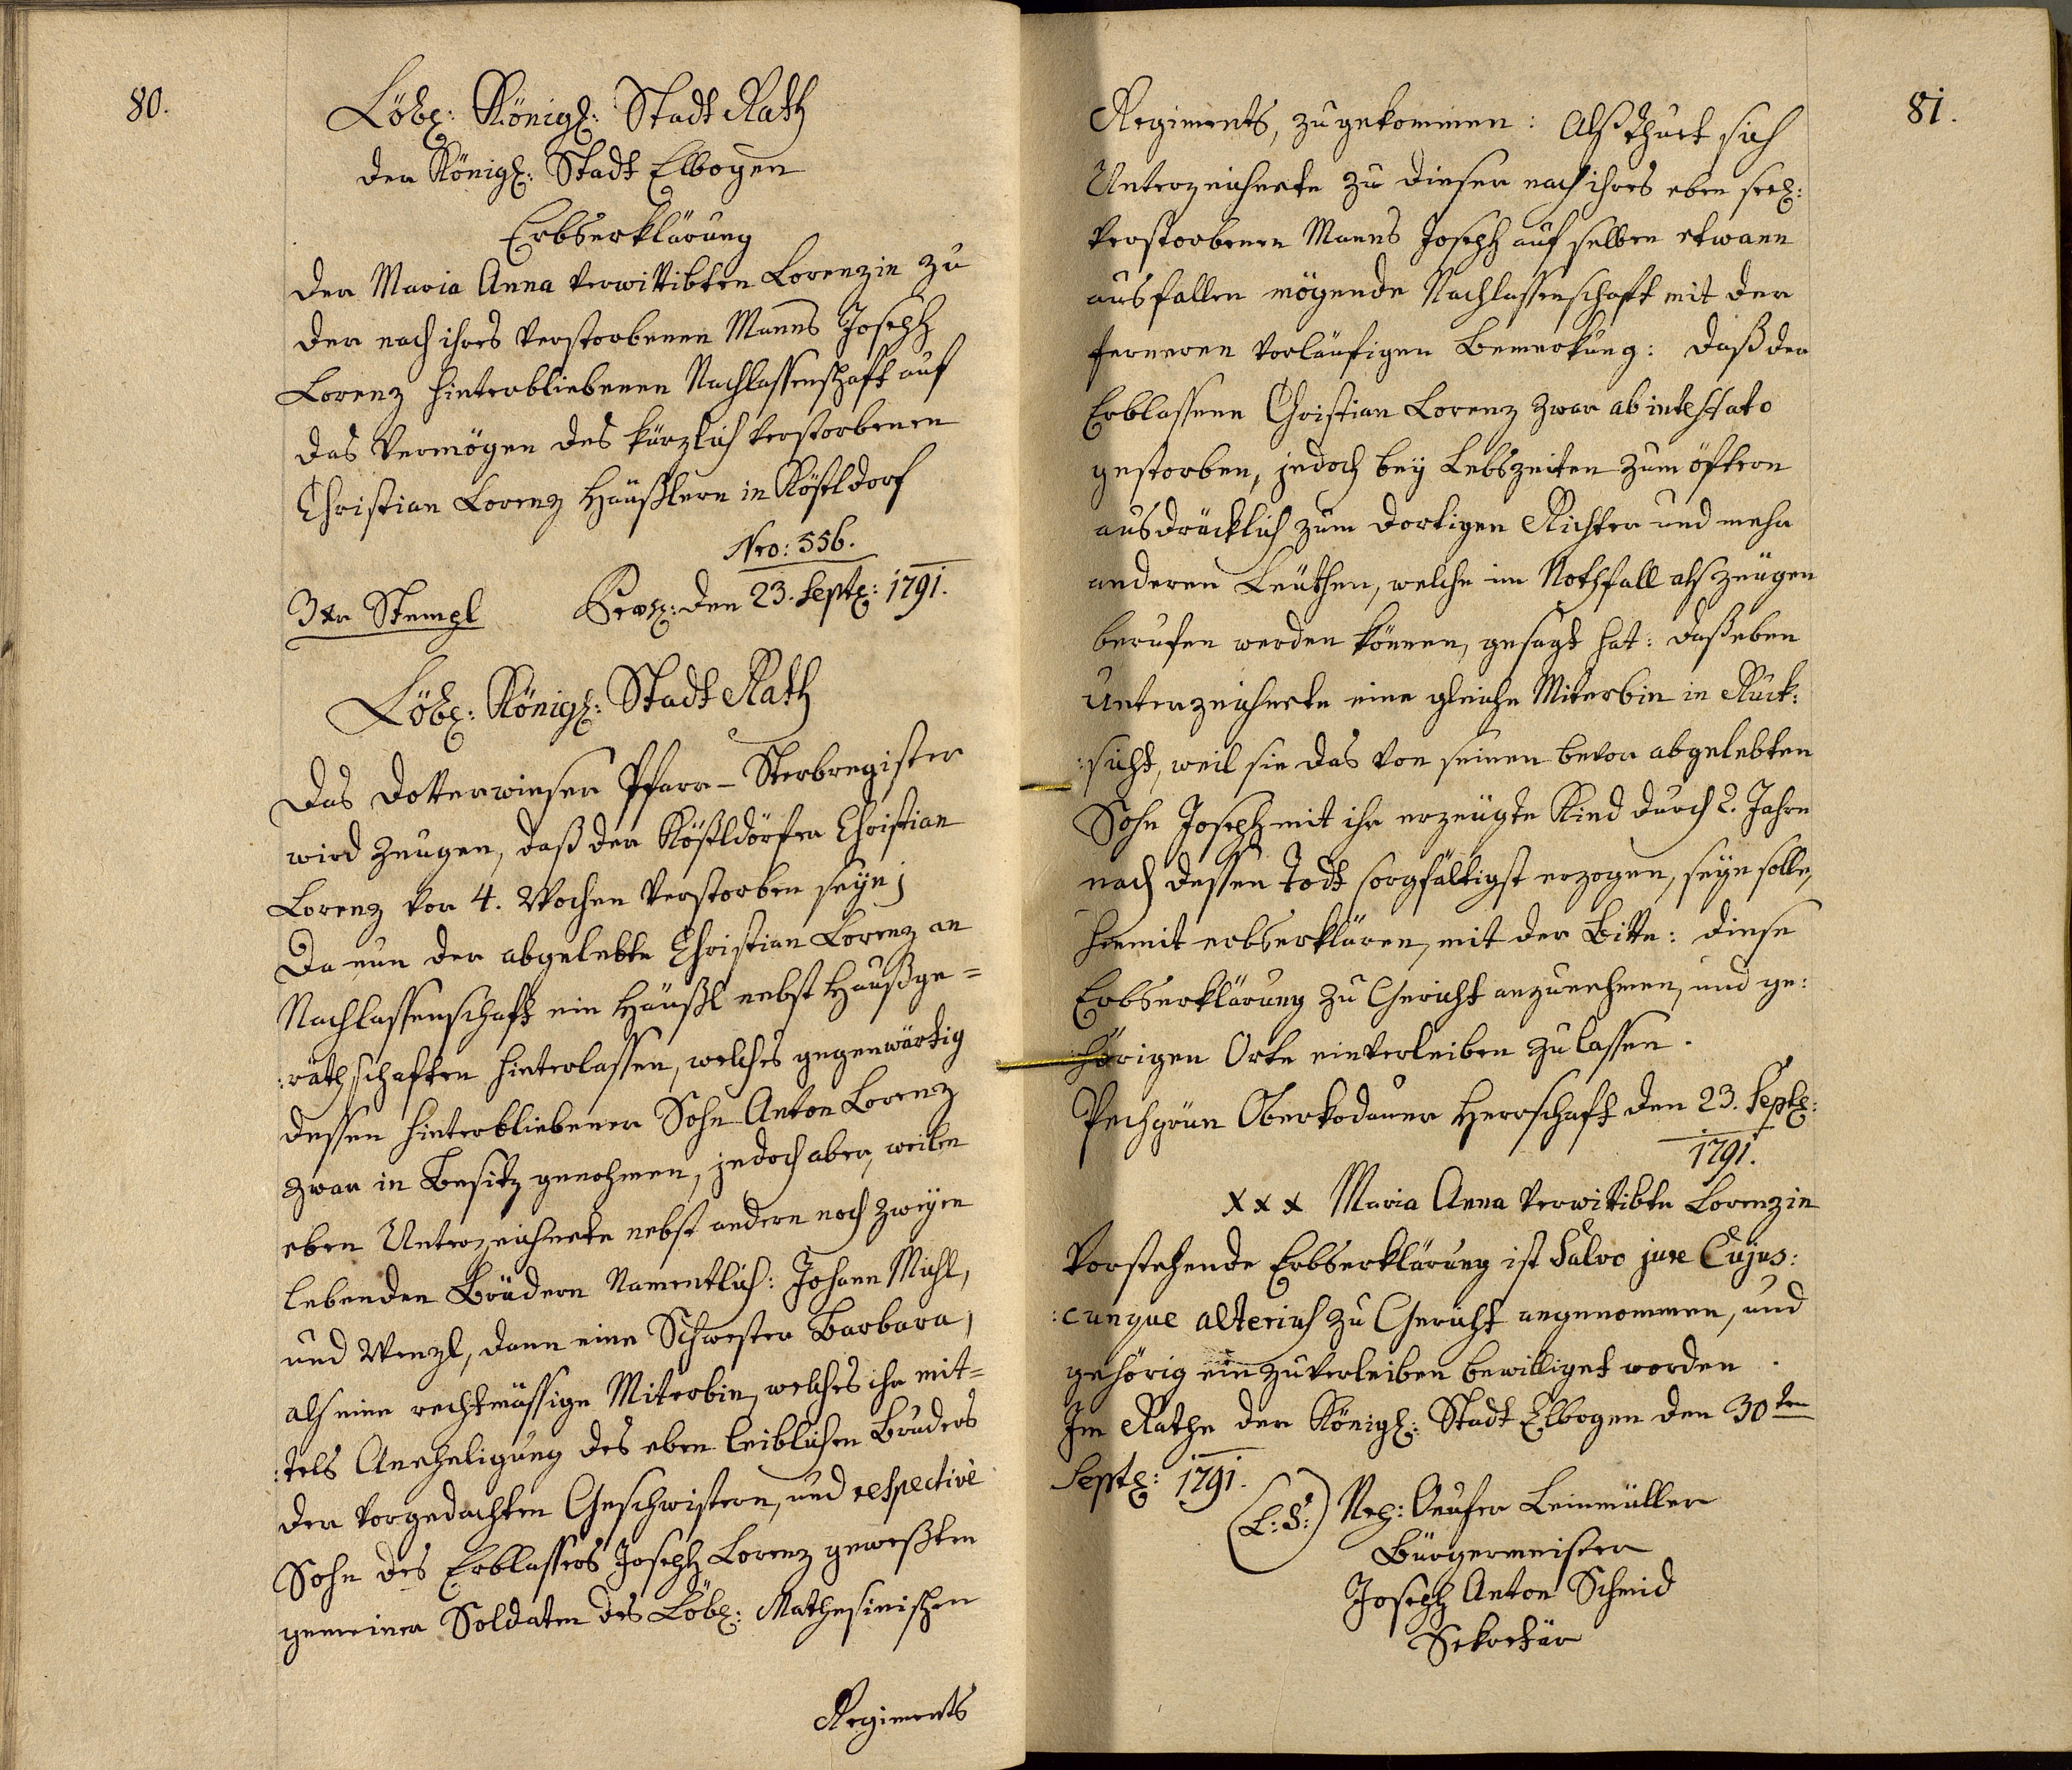 80.
Löbl: Königl: Stadt Rath
der Königl: Stadt Elbogen
Erbserklärung
der Maria Anna verwittibten Lorenzin zu
der nach ihres verstorbenen Manns Joseph
Lorenz hinterbliebenen Nachlassenschaft auf
das Vermögen des kürzlich verstorbenen
Christian Lorenz Häußlern in Kößtldorf
Nro: 556.
3xr Stempl Præs: den 23. Septl: 1791.
Löbl: Königl: Stadt Rath
Das Dotterwieser Pfarr-Sterbregister
wird zeugen, daß der Kößtldörfer Christian
Lorenz vor 4. Wochen verstorben seye;
Da nun der abgelebte Christian Lorenz an
Nachlassenschaft ein Häußl nebst Haußge=
:räthschaften hinterlassen, welches gegenwärtig
dessen hinterbliebener Sohn Anton Lorenz
zwar in Besitz genohmen, jedoch aber, weilen
eben Unterzeichnete nebst andern noch zweyen
lebenden Brüdern Namentlich: Johann Michl,
und Wenzl, dann eine Schwester Barbara,
als eine rechtmässige Miterbin, welches ihr mit=
:tels Aneheligung des eben leiblichen Bruders
der vorgedachten Geschwistern, und respective
Sohn des Erblassers Joseph Lorenz geweßten
gemeinen Soldaten des Löbl: Mathesinischen
Regiments
81.
Regiments, zugekommen: Als thuet sich
Unterzeichnete zu dieser nach ihres eben seel:
verstorbenen Manns Joseph auf selben etwann
ausfallen mögende Nachlassenschaft mit der
ferneren vorläufigen Bemerkung: daß der
Erblassere Christian Lorenz zwar ab intestato
gestorben, jedoch bey Lebszeiten zum öftern
ausdrücklich zum dortigen Richter und mehr
anderen Leuthen, welche im Nothfall als zeugen
berufen werden können, gesagt hat: daß eben
Unterzeichnete eine gleiche Miterbin in Ruck:
:sicht, weil sie das von seinen bevor abgelebten
Sohn Joseph mit ihr erzeugte Kind durch 2. Jahre
nach dessen Todt sorgfältigst erzogen, seyn solle,
hiemit erbserklären, mit der Bitte: diese
Erbserklärung zu Gericht anzunehmen, und ge:
:hörigen Orte einverleiben zu lassen.
Pechgrün Oberkodauer Herrschaft den 23. Septl:
1791.
xxx Maria Anna verwittibte Lorenzin
Vorstehende Erbserklärung ist Salvo jure Cujus:
:cunque alterius zu Gericht angenommen, und
gehörig einzuverleiben bewilliget worden.
Im Rathe der Königl: Stadt Elbogen den 30ten
Septl: 1791.
(L:S:) Leinmüller
Bürgermeister
Joseph Anton Schmid
Sekretär